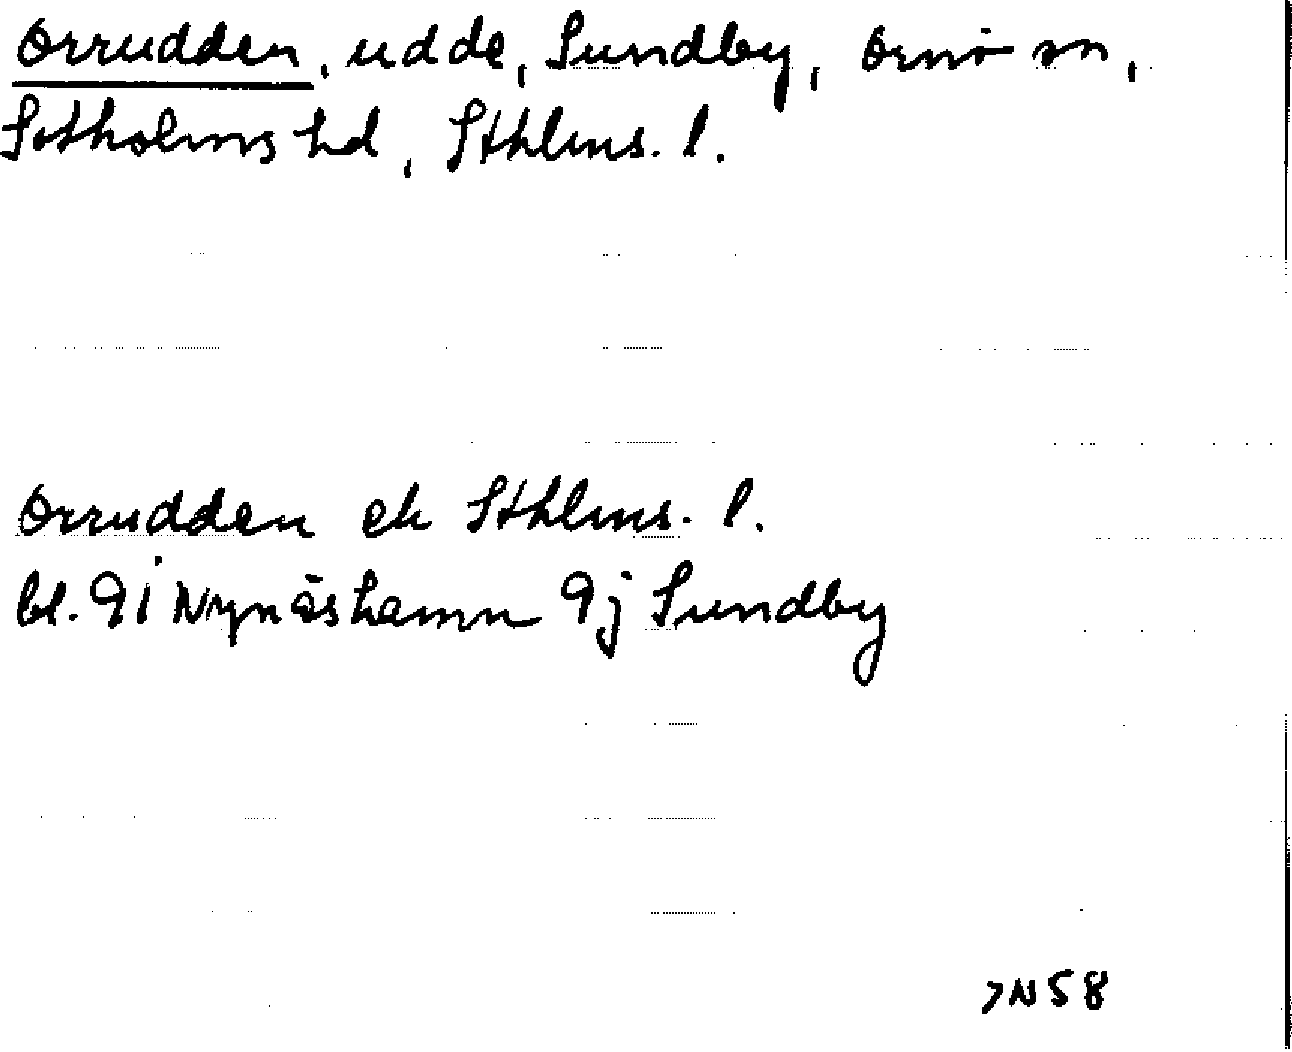 Orrudden, udde, Sundby, Ornö sn,
Sotholms hd, Sthlms. l.
Orrudden ek Sthlms. l.
bl. 9i Nynäshamn 9j Sundby
JN58